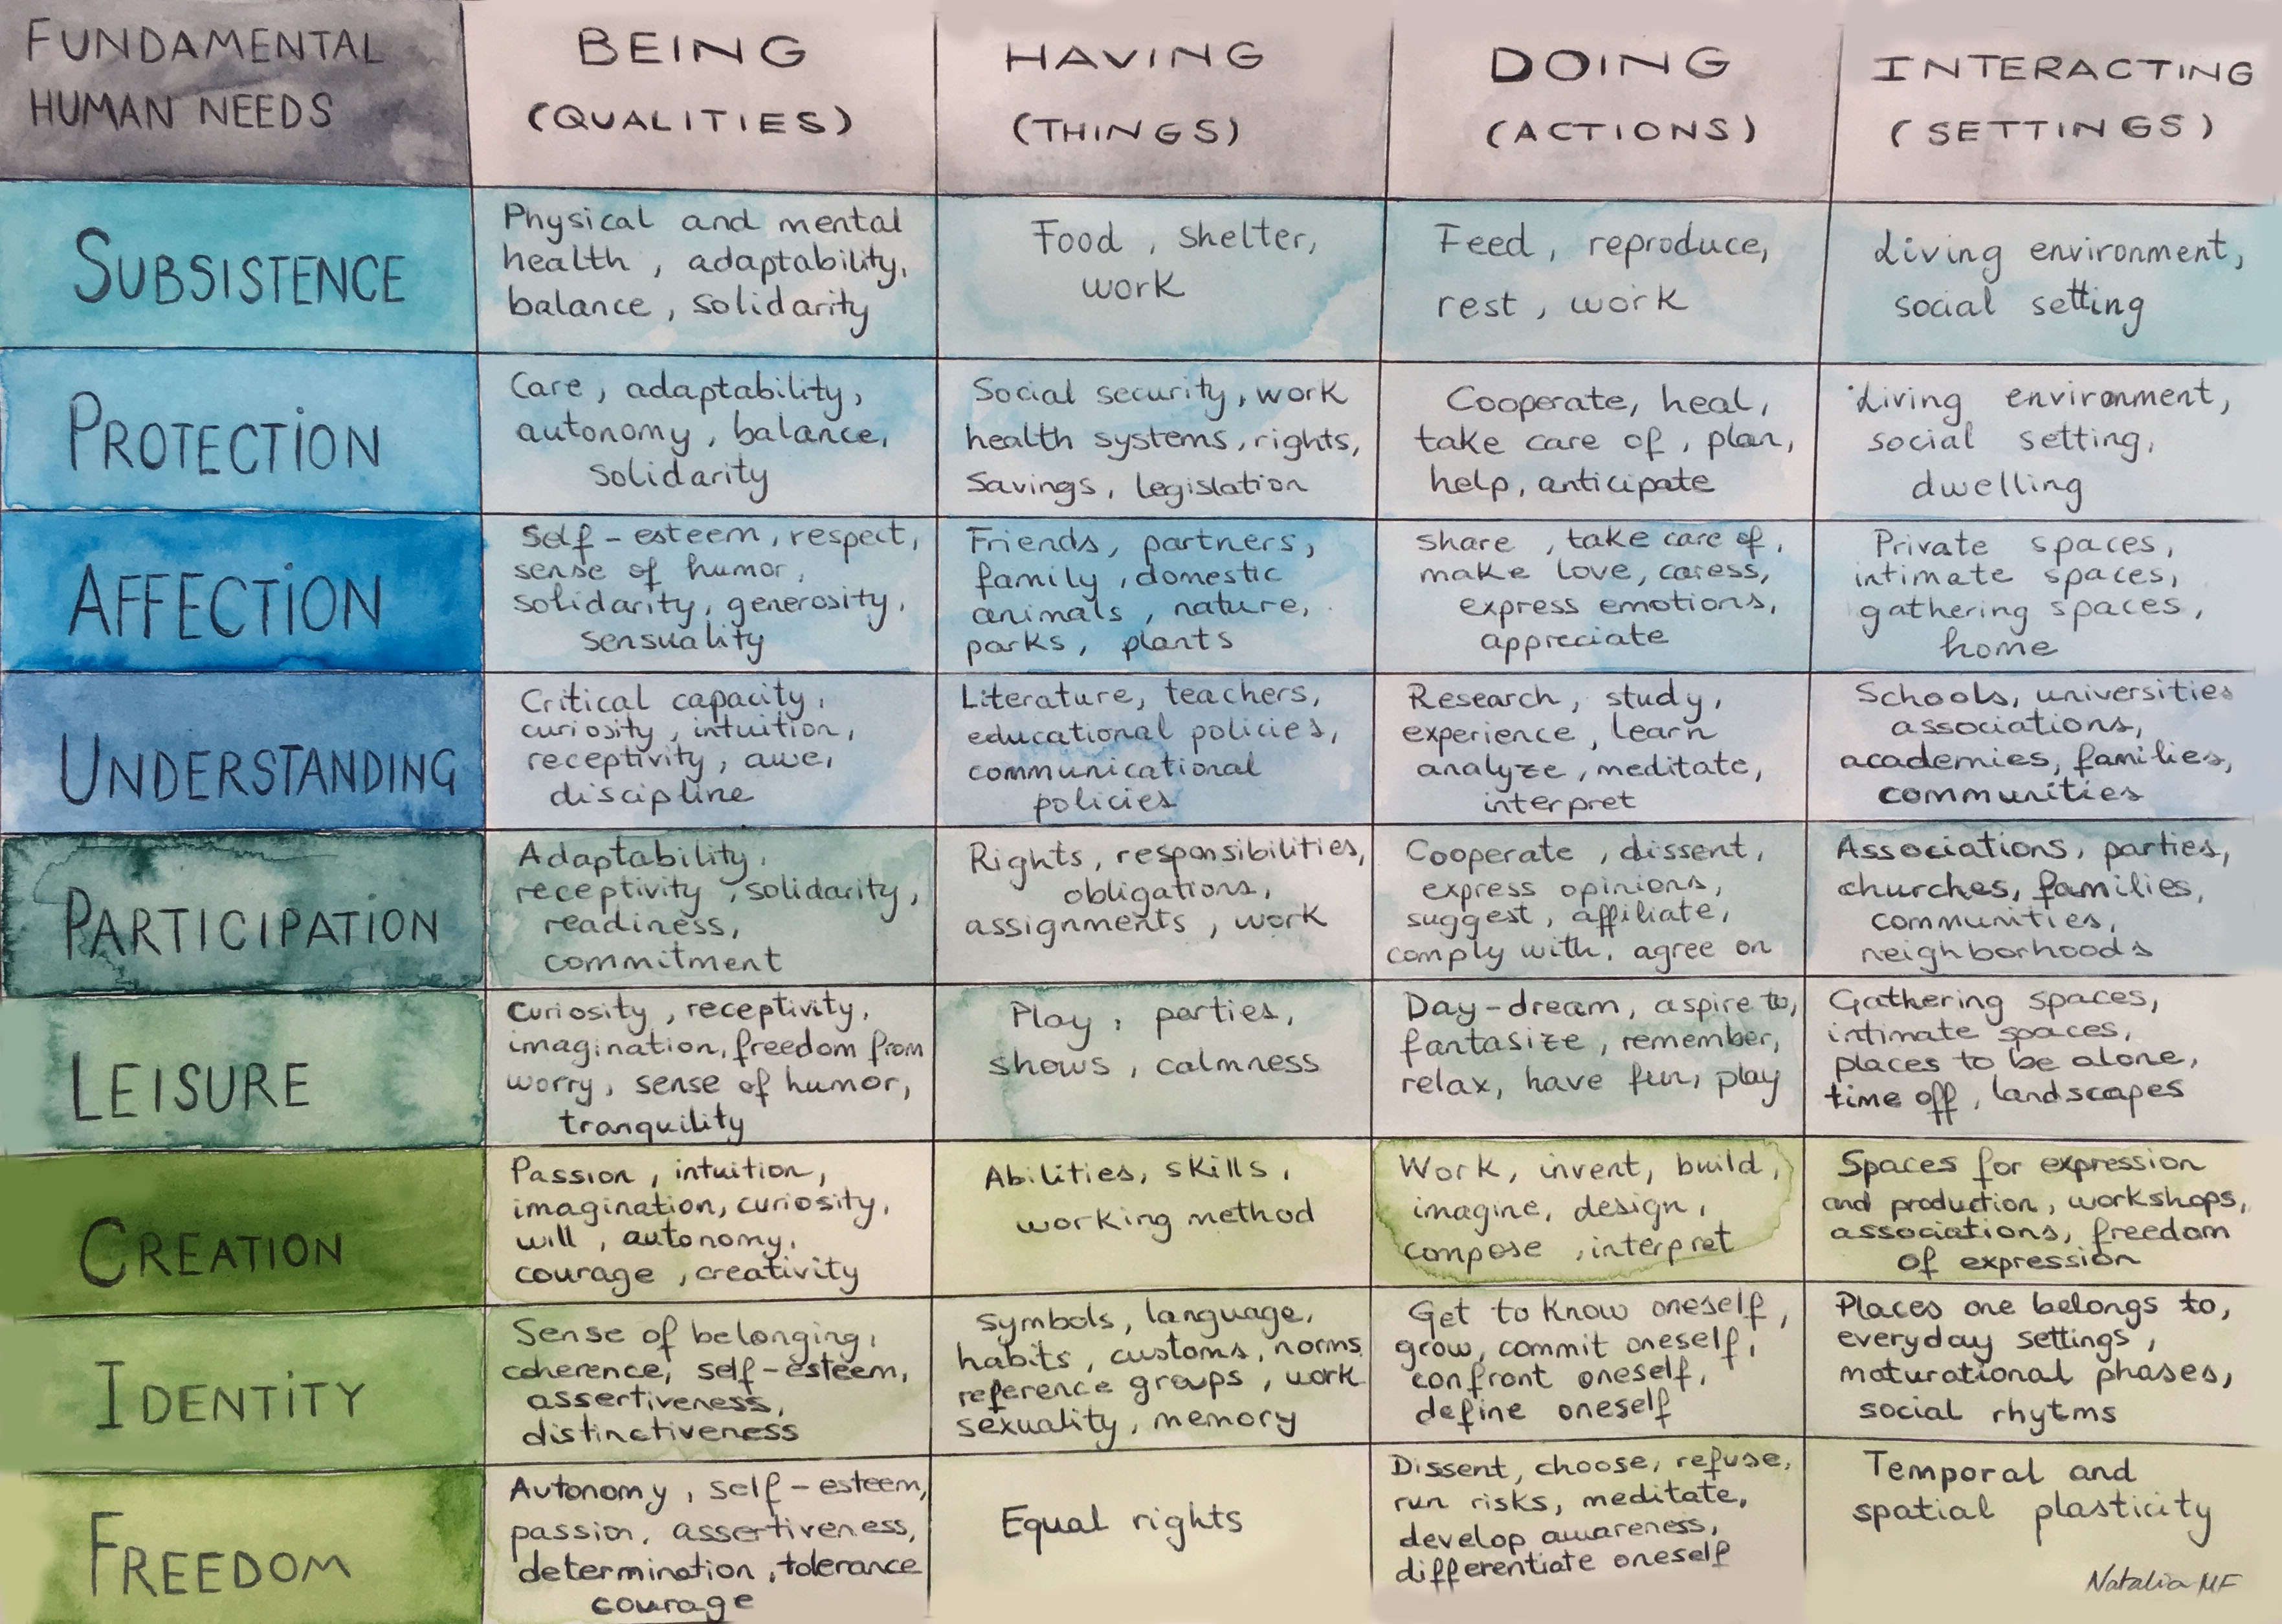 FUNDAMENTAL
HUMAN NEEDS
BEING
(QUALITIES)
HAVING
(THINGS)
DOING
(ACTIONS)
INTERACTING
(SETTINGS)
SUBSISTENCE
Physical and mental
health, adaptability,
balance, solidarity
Food, shelter,
work
Feed, reproduce,
rest, work
Living environment,
social setting
PROTECTION
Care, adaptability,
autonomy, balance,
solidarity
Social security, work
health systems, rights,
Savings, legislation
Cooperate, heal,
take care of, plan,
help, anticipate
Living environment,
social setting,
dwelling
AFFECTION
Self-esteem, respect,
sense of humor,
solidarity, generosity,
sensuality
Friends, partners,
family, domestic
animals, nature,
parks, plants
share, take care of,
make love, caress,
express emotions,
appreciate
Private spaces,
intimate spaces,
gathering spaces,
home
UNDERSTANDING
Critical capacity,
curiosity, intuition,
receptivity, awe,
discipline
Literature, teachers,
educational policies,
communicational
policies
Research, study,
experience, learn
analyze, meditate,
interpret
Schools, universities
associations,
academies, families,
communities
PARTICIPATION
Adaptability,
receptivity, solidarity,
readiness,
commitment
Rights, responsibilities,
obligations,
assignments, work
Cooperate, dissent,
express opinions,
suggest, affiliate,
comply with, agree on
Associations, parties,
churches, families,
communities,
neighborhoods
LEISURE
Curiosity, receptivity,
imagination, freedom from
worry, sense of humor,
tranquility
Play, parties,
shows, calmness
Day-dream, aspire to,
fantasize, remember,
relax, have fun, play
Gathering spaces,
intimate spaces,
places to be alone,
time off, landscapes
CREATION
Passion, intuition,
imagination, curiosity,
will, autonomy,
courage, creativity
Abilities, skills,
working method
Work, invent, build,
imagine, design,
compose, interpret
Spaces for expression
and production, workshops,
associations, freedom
of expression
IDENTITY
Sense of belonging,
coherence, self-esteem,
assertiveness,
distinctiveness
Symbols, language,
habits, customs, norms
reference groups, work
sexuality, memory
Get to know oneself,
grow, commit oneself,
confront oneself,
define oneself
Places one belongs to,
everyday settings,
maturational phases,
social rhytms
FREEDOM
Autonomy, self-esteem,
passion, assertiveness,
determination, tolerance
courage
Equal rights
Dissent, choose, refuse,
run risks, meditate,
develop awareness,
differentiate oneself
Temporal and
spatial plasticity
Natalia MF